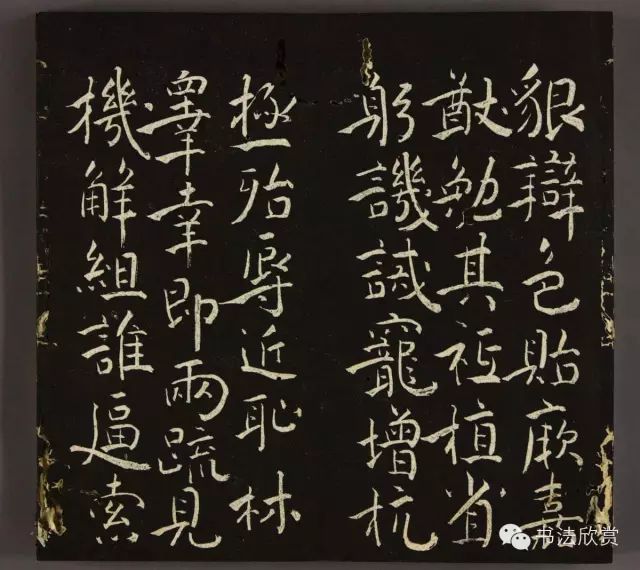 貌辯色貽厥嘉
猷勉其祗植省
躬譏誡寵增抗
極殆辱近恥林
睾幸即兩疏見
機解組誰逼索
书法欣赏